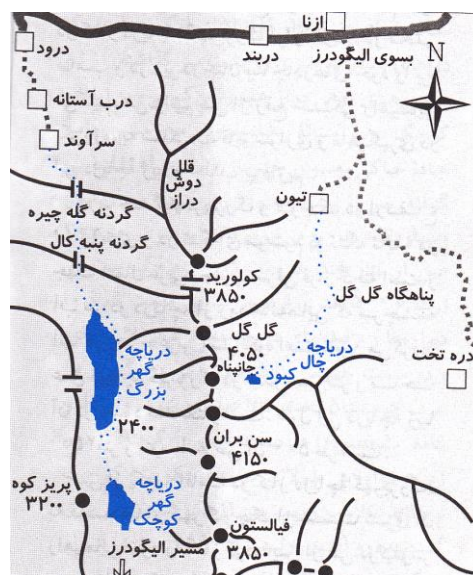 ازنا
درود
دربند
بسوی الیگودرز
N
درب آستانه
سرآوند
قلل
دوش
دراز
تیون
گردنه گله چیره
گردنه پنبه کال
کولورید
۳۸۵۰
پناهگاه گل گل
گل گل
۴۰۵۰
جانپناه
دریاچه
چال کبود
دره تخت
دریاچه
گهر
بزرگ
۲۴۰۰
سن بران
۴۱۵۰
پریز کوه
۳۲۰۰
دریاچه
گهر
کوچک
فیالستون
۳۸۵۰
مسیر الیگودرز